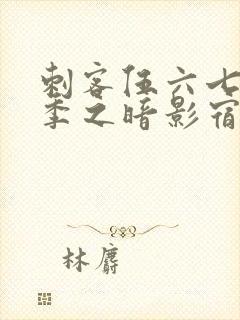 刺客伍六七
季之暗影宿
林麝